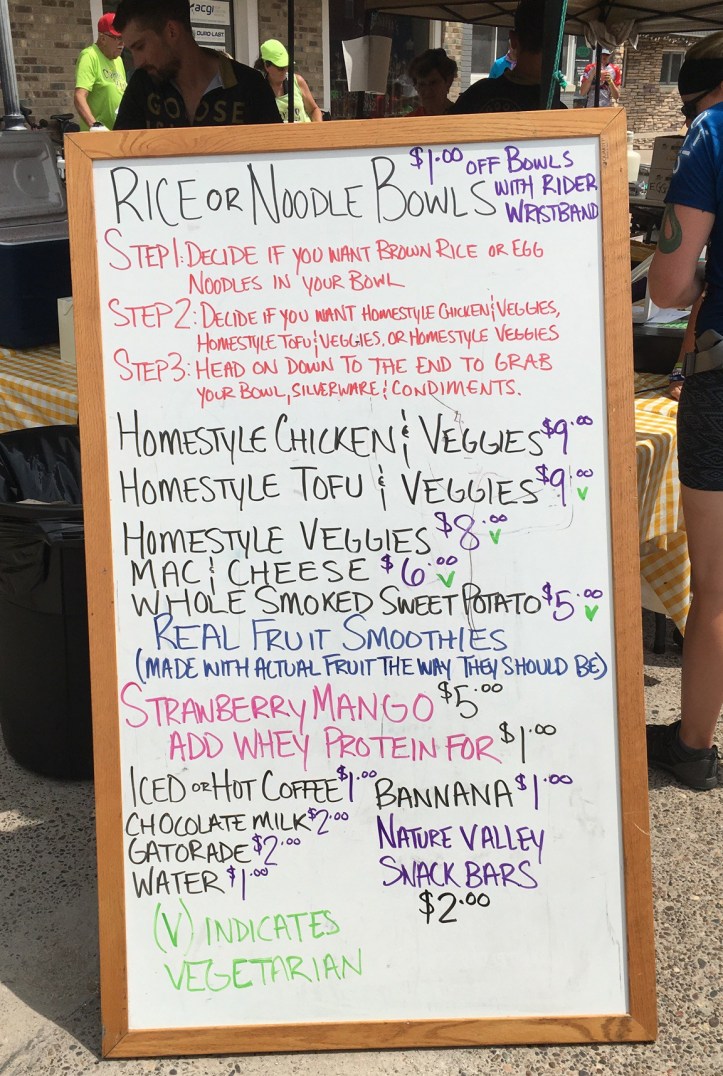 acgi
DURO-LAST
GOOSE
RICE OR NOODLE BOWLS
$1.00 OFF BOWLS
WITH RIDER
WRISTBAND
STEP 1: DECIDE IF YOU WANT BROWN RICE OR EGG
NOODLES IN YOUR BOWL
STEP 2: DECIDE IF YOU WANT HOMESTYLE CHICKEN & VEGGIES,
HOMESTYLE TOFU & VEGGIES, OR HOMESTYLE VEGGIES
STEP 3: HEAD ON DOWN TO THE END TO GRAB
YOUR BOWL, SILVERWARE & CONDIMENTS.
HOMESTYLE CHICKEN & VEGGIES $9.00
HOMESTYLE TOFU & VEGGIES $9.00 V
HOMESTYLE VEGGIES $8.00 V
MAC & CHEESE $6.00 V
WHOLE SMOKED SWEET POTATO $5.00 V
REAL FRUIT SMOOTHIES
(MADE WITH ACTUAL FRUIT THE WAY THEY SHOULD BE)
STRAWBERRY MANGO $5.00
ADD WHEY PROTEIN FOR $1.00
ICED OR HOT COFFEE $1.00
CHOCOLATE MILK $2.00
GATORADE $2.00
WATER $1.00
BANNANA $1.00
NATURE VALLEY
SNACK BARS
$2.00
(V) INDICATES
VEGETARIAN